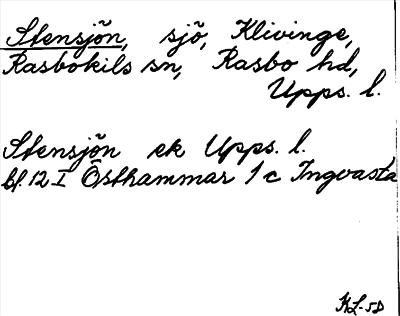 Stensjön, sjö, Klivinge,
Rasbokils sn, Rasbo hd,
Upps. l.
Stensjön ek Upps. l.
bl. 12 I Östhammar 1 c Ingvasta
KL-50